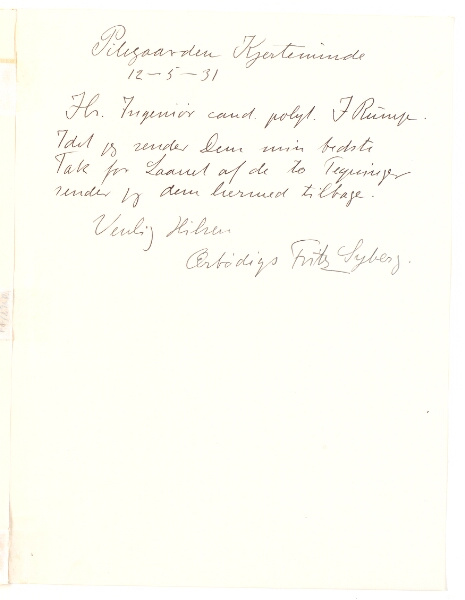 Pilegaarden Kjerteminde
12-5-31
Hr. Ingeniör cand. polyt. J Rump.
Idet jeg sender Dem min bedste
Tak for Laanet af de to Tegninger
sender jeg dem hermed tilbage.
Venlig Hilsen
Ærbödigs Fritz Syberg.